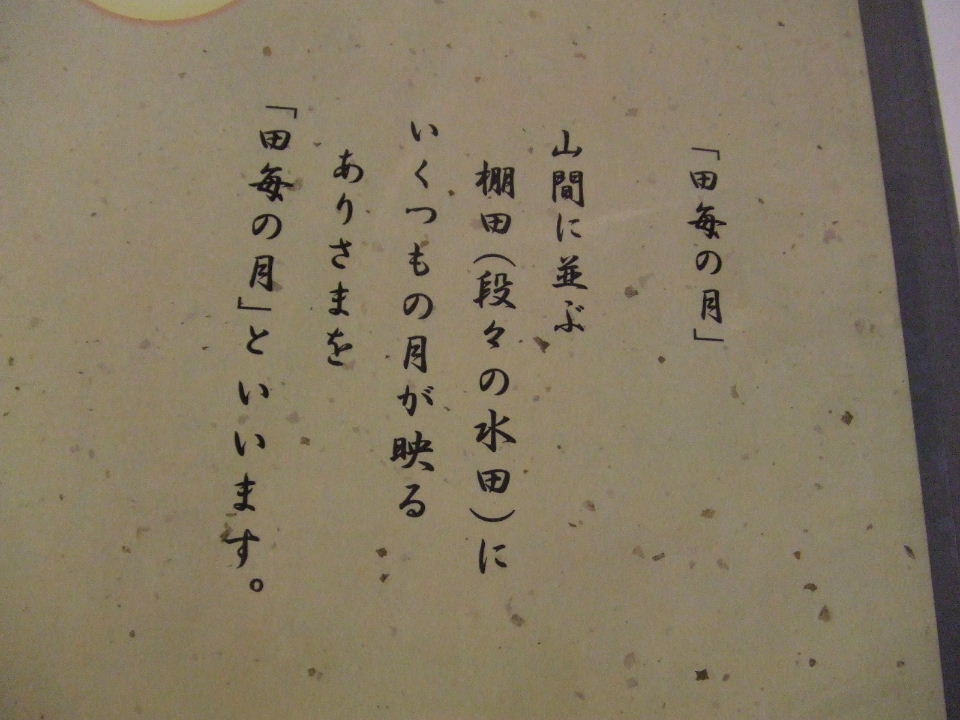 「田毎の月」
山間に並ぶ
棚田(段々の水田)に
いくつもの月が映る
ありさまを
「田毎の月」といいます。